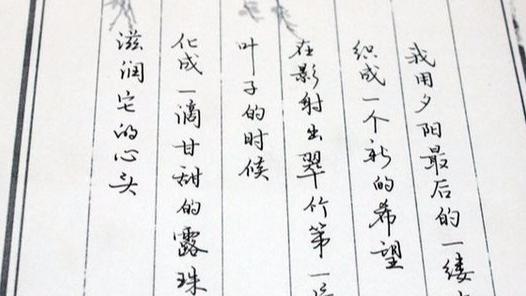 我用夕阳最后的一缕
织成一个新的希望
在影射出翠竹第一
叶子的时候
化成一滴甘甜的露珠
滋润它的心头